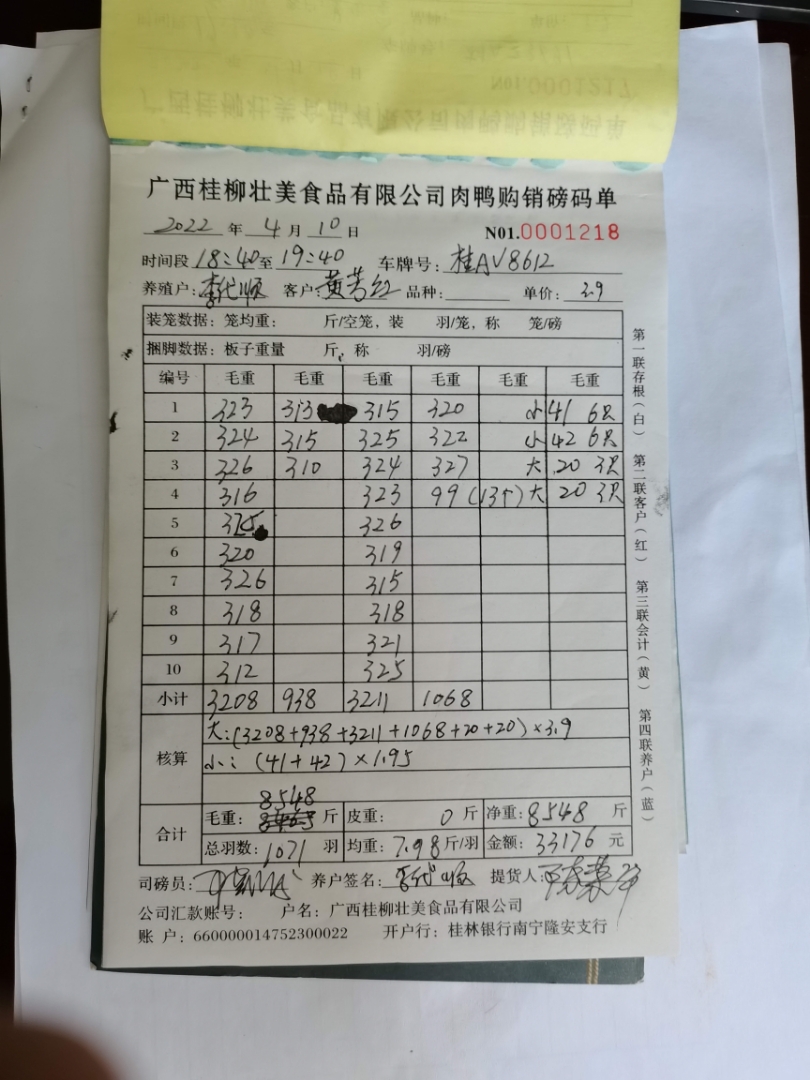 广西桂柳壮美食品有限公司肉鸭购销磅码单
2022 年 4 月 10 日 N01.0001218
时间段 18:40 至 19:40 车牌号: 桂AV8612
养殖户: 李代顺 客户: 黄芳红 品种: 单价: 3.9
装笼数据: 笼均重: 斤/空笼, 装 羽/笼, 称 笼/磅
捆脚数据: 板子重量 斤, 称 羽/磅
编号 毛重 毛重 毛重 毛重 毛重 毛重
1 323 313 315 320 小 41 6只
2 324 315 325 322 小 42 6只
3 326 310 324 327 大 20 3只
4 316 323 99 (13个) 大 20 3只
5 326
6 320 319
7 326 315
8 318 318
9 317 321
10 312 325
小计 3208 938 3211 1068
核算 大:(3208+938+3211+1068+20+20)×3.9
小: (41+42)×1.95
合计 毛重: 8548 斤 皮重: 0 斤 净重: 8548 斤
总羽数: 1071 羽 均重: 7.98 斤/羽 金额: 33176 元
司磅员: 养户签名: 李代顺 提货人:
公司汇款账号: 户名: 广西桂柳壮美食品有限公司
账 户: 660000014752300022 开户行: 桂林银行南宁隆安支行
第一联存根(白) 第二联客户(红) 第三联会计(黄) 第四联养户(蓝)